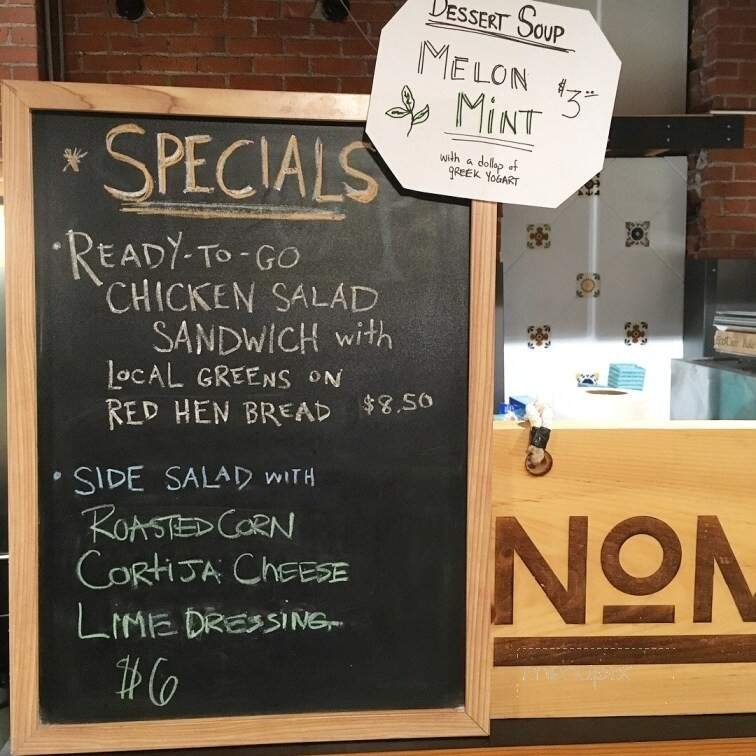 DESSERT SOUP
MELON
MINT
$3.00
with a dollop of
GREEK YOGART
* SPECIALS
• READY-TO-GO
CHICKEN SALAD
SANDWICH with
LOCAL GREENS ON
RED HEN BREAD $8.50
• SIDE SALAD WITH
ROASTED CORN
CORTIJA CHEESE
LIME DRESSING
$6
NOM